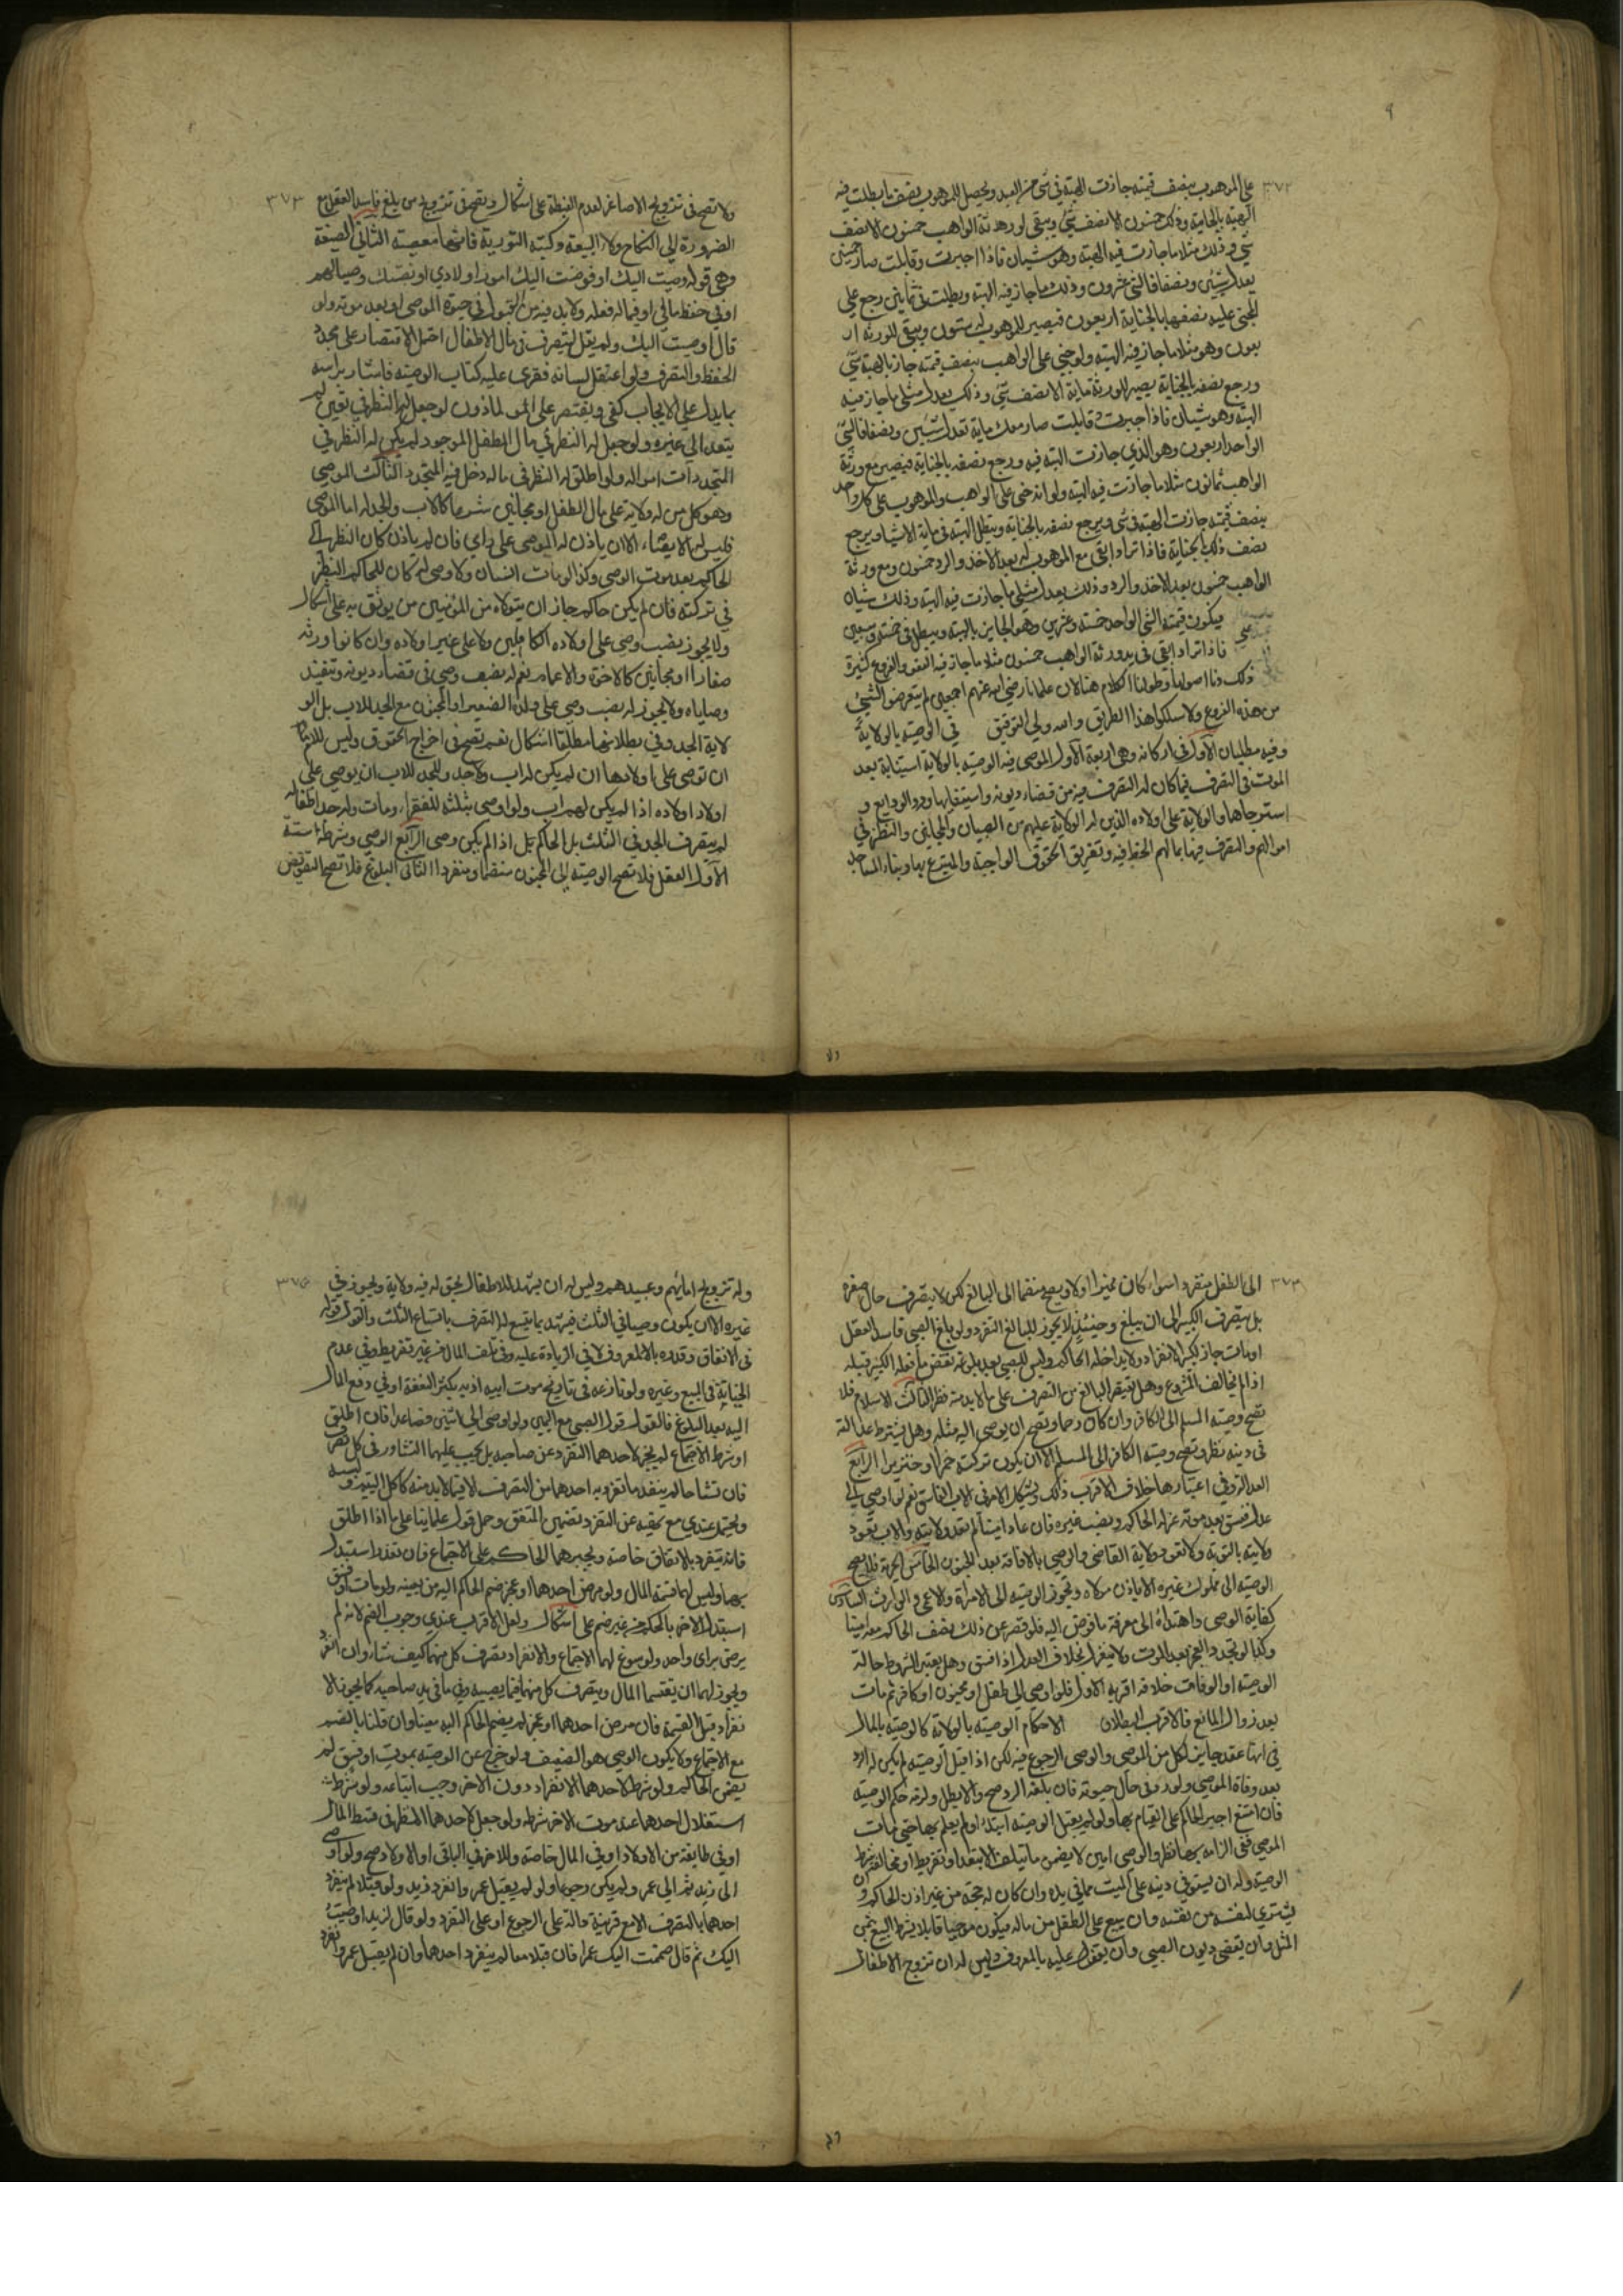 ٣٧٢
على الموهوب بنصف قيمته جازت الهبة في شي من العبد ويحصل للموهوب بنصف ما بطلت فيه
الهبة بالجناية وذلك خمسون الا نصف شي ويبقى لورثة الواهب خمسون الا نصف
شي وذلك مثلا ما جازت فيه الهبة وهو شيان فاذا اجبرت وقابلت صار خمسين
يعدل شيئين ونصفا فالشي عشرون وذلك ما جاز فيه الهبة وبطلت في ثمانين رجع على
المجني عليه بنصفها بالجناية اربعون فيصير للموهوب له ستون ويبقى للورثة ار
بعون وهو مثلا ما جاز فيه الهبة ولو جني على الواهب بنصف قيمته جاز بالهبة شي
ورجع نصفه بالجناية يصير للورثة ماية الا نصف شي وذلك يعدل مثلي ما جاز فيه
الهبة وهو شيان فاذا جبرت وقابلت صار معك ماية تعدل شيئين ونصفا فالشي
الواحد اربعون وهو الذي جازت الهبة فيه ورجع نصفه بالجناية فيصير مع ورثة
الواهب ثمانون مثلا ما جازت فيه الهبة ولو انه جنى على الواهب والموهوب على كل واحد
بنصف قيمته جازت الهبة في شي ويرجع نصفه بالجناية ويبطل الهبة في ماية الا شيا ويرجع
نصف ذلك بالجناية فاذا ترادا بقي مع الموهوب له بعد الاخذ والرد خمسون ومع ورثة
الواهب خمسون بعد الاخذ والرد وذلك يعدل مثلي ما جازت فيه الهبة وذلك شيان
يكون قيمة الشي الواحد خمسة وعشرين وهو الجايز بالهبة ويبطل في خمسة وسبعين
فاذا ترادا بقي في يد ورثة الواهب خمسون مثلا ما جاز فيه العفو والفروع كثيرة
ذكرنا اصولها وطولنا الكلام هنا لان علمانا رضي الله عنهم اجمعين لم يتعرضوا لشي
من هذه الفروع ولا سلكوا هذا الطريق والله ولي التوفيق في الوصية بالولاية
وفيه مطلبان الاول في اركانه وهي اربعة الاول الموصى فيه الوصية بالولاية استنابة بعد
الموت في التصرف فيما كان له التصرف فيه من قضاء ديونه واستيفايها ورد الودايع و
استرجاعها والولاية على اولاده الذين له الولاية عليهم من الصبيان والمجانين والنظر في
اموالهم والتصرف فيها بما لهم الحظ فيه وتفريق الحقوق الواجبة والمتبرع بها وبناء المساجد
٣٧٣
ولا تصح في تزويج الاصاغر لعدم الغبطة على اشكال وتصح في تزويج من بلغ فاسد العقل مع
الضرورة الى النكاح ولا البيعة وكتبة التورية فانهما معصية الثاني الصيغة
وهي قوله وصيت اليك او فوضت اليك امور اولادي او نصبتك وصيا لهم
او في حفظ مالي او فيما له فعله ولا بد فيه من القبول في حيوة الموصي او بعد موته ولو
قال اوصيت اليك ولم يقل لتتصرف في مال الاطفال احتمل الاقتصار على مجرد
الحفظ والتصرف ولو اعتقل لسانه فقرى عليه كتاب الوصية فاشار براسه
بما يدل على الايجاب كفى ويقتصر على المولى الماذون لو جعل له النظر في معين لم
يتعد الى غيره ولو جعل له النظر في مال الطفل الموجود لم يكن له النظر في
المتجددات امواله ولو اطلق له النظر في ماله دخل فيه المتجدد الثالث الموصي
وهو كل من له ولاية على مال الطفل او مجانين شرعا كالاب والجد له اما الوصي
فليس له الايصاء الا ان ياذن له الموصي على راي فان لم ياذن كان النظر الى
الحاكم بعد موت الوصي وكذا لو مات انسان ولا وصي له كان للحاكم النظر
في تركته فان لم يكن حاكم جاز ان يتولاه من المؤمنين من يوثق به على اشكال
ولا يجوز نصب وصي على اولاده الكاملين ولا على غير اولاده وان كانوا ورثة
صغارا او مجانين كالاخوة والاعمام نعم له نصب وصي في قضاء ديونه وتنفيذ
وصاياه ولا يجوز له نصب وصي على ولده الصغير او المجنون مع الجد للاب بل الو
لاية للجد وفي بطلانها مطلقا اشكال نعم تصح في اخراج الحقوق وليس للام
ان توصي على اولادها ان لم يكن لهم اب ولا جد وللجد للاب ان يوصي على
اولاد اولاده اذا لم يكن لهم اب ولو اوصى بثلثه للفقراء ومات وله جد اطفاله
لم يتصرف الجد في الثلث بل الحاكم بل اذا لم يكن وصي الرابع الوصي وشرطه ستة
الاول العقل فلا تصح الوصية الى المجنون منضما ومنفردا الثاني البلوغ فلا تصح التفويض
٣٧٣
الى الطفل منفردا سواء كان مميزا او لا ويصح منضما الى البالغ لكن لا يتصرف حال صغره
بل يتصرف الكبير الى ان يبلغ وحينئذ لا يجوز للبالغ التفرد ولو بلغ الصبي فاسد العقل
او مات جاز للكبير الانفراد ولا يداخله الحاكم وليس للصبي بعد بلوغه نقض ما فعله الكبير قبله
اذا لم يخالف المشروع وهل يقتصر البالغ من التصرف على ما لا بد منه نظر الثالث الاسلام فلا
تصح وصية المسلم الى الكافر وان كان رحما وتصح ان يوصي اليه مثله وهل يشترط عدالته
في دينه نظر وتصح وصية الكافر الى المسلم الا ان يكون تركته خمرا او خنزيرا الرابع
العدالة وفي اعتبارها خلاف الاقرب ذلك ويشكل الامر في الاب الفاسق نعم لو اوصى الى
عدل ففسق بعد موته عزله الحاكم ونصب غيره فان عاد امينا لم تعد ولايته والاب تعود
ولايته بالتوبة ولا تعود ولاية القاضي والوصي بالافاقة بعد الجنون الخامس الحرية فلا تصح
الوصية الى مملوك غيره الا باذن مولاه وتجوز الوصية الى الامراة والاعمى والوارث السادس
كفاية الوصي واهتداؤه الى معرفة ما فوض اليه فلو قصر عن ذلك نصب الحاكم معه امينا
وكذا لو تجدد العجز بعد الموت ولا ينعزل بخلاف العدل اذا فسق وهل يعتبر الشروط حالة
الوصية او الوفات خلاف اقربه الاول فلو اوصى الى طفل او مجنون او كافر ثم مات
بعد زوال المانع فالاقرب البطلان الاحكام الوصية بالولاية كالوصية بالمال
في انها عقد جايز لكل من الموصي والوصي الرجوع فيه لكن اذا قبل الوصية لم يكن له الرد
بعد وفاة الموصي ولو رد في حال حيوته فان بلغه الرد صح والا بطل ولزمه حكم الوصية
فان امتنع اجبره الحاكم على القيام بها ولو لم يقبل الوصية ابتداء او لم يعلم بها حتى مات
الموصي ففي الزامه بها نظر والوصي امين لا يضمن ما يتلف الا بتعد او تفريط او مخالفة شرط
الوصية وله ان يستوفي دينه على الميت مما في يده وان كان له حجة من غير اذن الحاكم وان
يشتري لنفسه من نفسه وان يبيع على الطفل من ماله فيكون موجبا قابلا بشرط البيع بثمن
المثل وان يقضي ديون الصبي وان ينفق عليه بالمعروف وليس له ان تزوج الاطفال
٣٧٤
وله تزويج امائهم وعبيدهم وليس له ان يشهد للاطفال بحق له فيه ولاية ويجوز في
غيره الا ان يكون وصيا في الثلث فيشهد بما يتسع له التصرف باتساع الثلث والقول قوله
في الانفاق وقدره بالمعروف لا في الزيادة عليه وفي تلف المال من غير تفريط وفي عدم
الخيانة في البيع وغيره ولو نازعه في تاريخ موت ابيه اذ به يكثر النفقة او في دفع المال
اليه بعد البلوغ فالقول قول الصبي مع اليمين ولو اوصى الى اثنين فصاعدا فان اطلق
او شرط الاجتماع لم يجز لاحدهما التفرد عن صاحبه بل يجب عليهما التشاور في كل تصرف
فان تشاحا لم ينفذ ما تفرد به احدهما من التصرف الا فيما لا بد منه كاكل اليتيم ولبسه
ويحتمل عندي مع نهيه عن التفرد تضمين المنفق وحمل قول علماينا على ما اذا اطلق
فانه ينفرد بالانفاق خاصة ويجبرهما الحاكم على الاجتماع فان تعذر استبدل
بهما وليس لهما قسمة المال ولو مرض احدهما او عجز ضم الحاكم اليه من يعينه ولو مات او فسق
استبد الاخر بالحكم من غير ضم على اشكال ولعل الاقرب عندي وجوب الضم لانه لم
يرض براي واحد ولو سوغ لهما الاجتماع والانفراد تصرف كل منهما كيف شاء وان انفرد
ويجوز لهما ان يقتسما المال ويتصرف كل منهما فيما يصيبه وفي ما في يد صاحبه كما يجوز الا
نفراد قبل القسمة فان مرض احدهما او عجز لم يضم الحاكم اليه معينا وان قلنا بالضم
مع الاجتماع ولا يكون الوصي هو الضعيف ولو خرج عن الوصية بموت او فسق لم
يضم الحاكم ولو شرط لاحدهما الانفراد دون الاخر وجب اتباعه ولو شرط
استقلال احدهما عند موت الاخر شرطه ولو جعل لاحدهما النظر في قسط المال
او في طايفة من الاولاد او في المال خاصة وللاخر في الباقي او الاولاد صح ولو اوصى
الى زيد ثم الى عمر ولم يكن رجوعا ولو لم يقبل عمر وانفرد زيد ولو قبلا لم ينفرد
احدهما بالتصرف الا مع قرينة دالة على الرجوع او على التفرد ولو قال لزيد اوصيت
اليك ثم قال ضممت اليك عمرا فان قبلا معا لم ينفرد احدهما وان لم يقبل عمرو انفرد